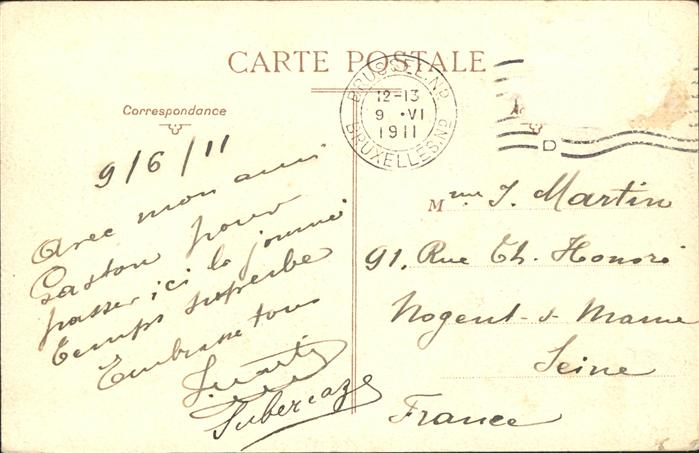 CARTE POSTALE
Correspondance
BRUSSEL.ND
12-13
9 ·VI
1911
BRUXELLES.ND
D
9/6/11
Avec mon ami
Gaston pour
passer ici la journée
Temps superbe
Embrasse tous
Subercaze
Mme J. Martin
91. Rue Ch. Honoré
Nogent-s-Marne
Seine
France